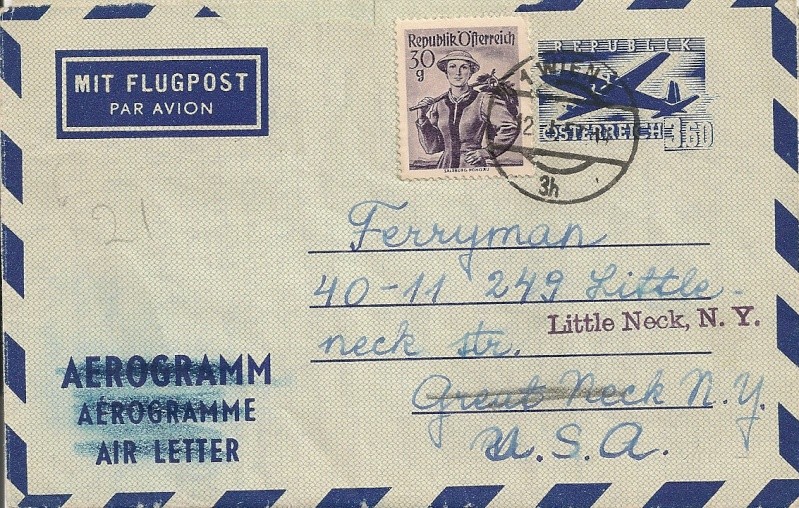 MIT FLUGPOST
PAR AVION
Republik Österreich
30
g
SALZBURG, PONGAU
REPUBLIK
ÖSTERREICH 3.60
1 WIEN
12
3h
21
Ferryman
40-11 249 Little-
neck str.
Little Neck, N. Y.
Great Neck N.Y.
U.S.A.
AEROGRAMM
AÉROGRAMME
AIR LETTER